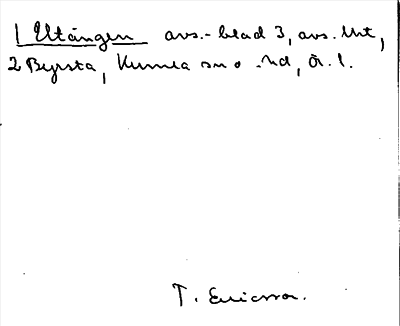 1 Utängen avs.-blad 3, avs. Utt,
2 Byrsta, Kumla sn o -hd, Ör. l.
T. Ericsson.